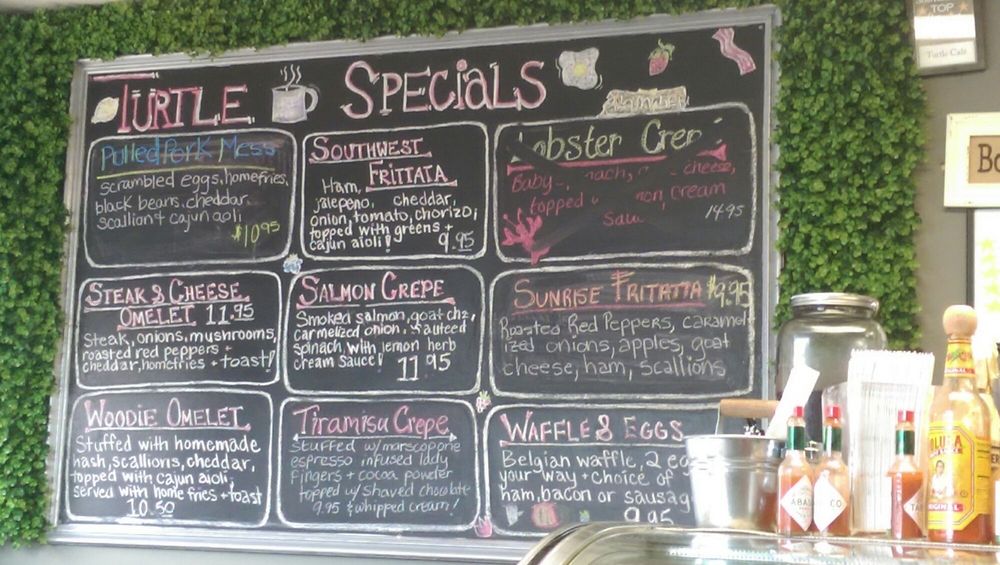 TURTLE SPECIALS
Pulled Pork Mess
scrambled eggs, homefries,
black beans, cheddar,
scallion + cajun aoli
$10.95
SOUTHWEST
FRITTATA
Ham,
jalepeño, cheddar,
onion, tomato, chorizo,
topped with greens +
cajun aioli!
9.95
Lobster
Baby cheese,
topped cream
14.95
STEAK & CHEESE
OMELET 11.95
Steak, onions, mushrooms,
roasted red peppers +
cheddar, homefries + toast!
SALMON CREPE
Smoked salmon, goat chz,
carmelized onion, sauteed
spinach, with lemon herb
cream sauce!
11.95
SUNRISE FRITATTA $9.95
Roasted Red Peppers, caramel-
ized onions, apples, goat
cheese, ham, scallions
WOODIE OMELET
Stuffed with homemade
hash, scallions, cheddar,
topped with cajun aioli,
served with home fries + toast
10.50
Tiramisu Crepe
stuffed w/ marscopone
espresso infused lady
fingers + cocoa powder
topped w/ shaved chocolate
9.95 & whipped cream!
WAFFLE & EGGS
Belgian waffle, 2
your-way + choice of
ham, bacon or
9.95
TOP
Turtle Café
ORIGINAL